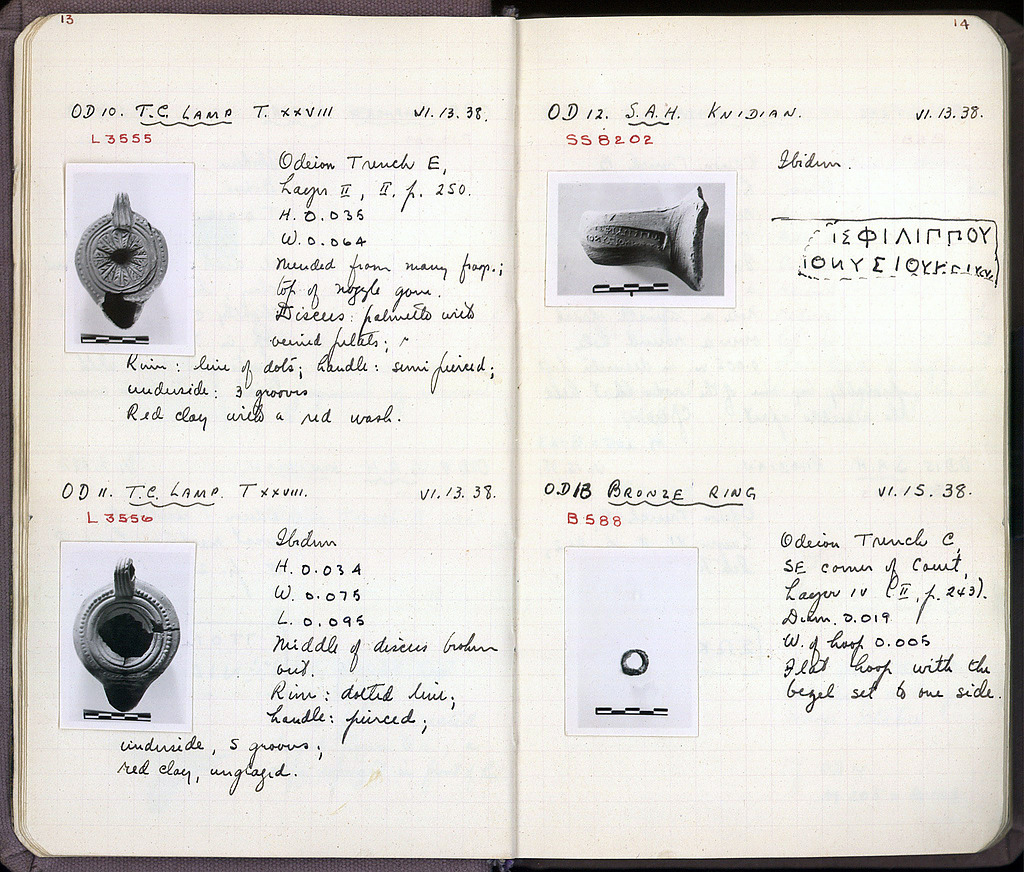 13
OD 10. T.C. LAMP T. XXVIII VI.13.38.
L 3555
Odeion Trench E,
Layer II, II, p. 250.
H. 0.035
W. 0.064
Mended from many frags.;
top of nozzle gone.
Discus: palmette with
veined petals;
Rim: line of dots; handle: semi pierced;
underside: 3 grooves
Red clay with a red wash.
OD 11. T.C. LAMP. T XXVIII. VI.13.38.
L 3556
Ibidum
H. 0.034
W. 0.075
L. 0.095
Middle of discus broken
out.
Rim: dotted line;
handle: pierced;
underside, 5 grooves;
red clay, unglazed.
14
OD 12. S.A.H. KNIDIAN. VI.13.38.
SS 8202
Ibidum.
ΙΣ ΦΙΛΙΠΠΟΥ
ΙΟΝΥΣΙΟΥ
OD 13 BRONZE RING VI.15.38.
B 588
Odeion Trench C,
SE corner of Court,
Layer IV (II, p. 243).
Diam. 0.019
W. of hoop 0.005
Flat hoop with the
bezel set to one side.